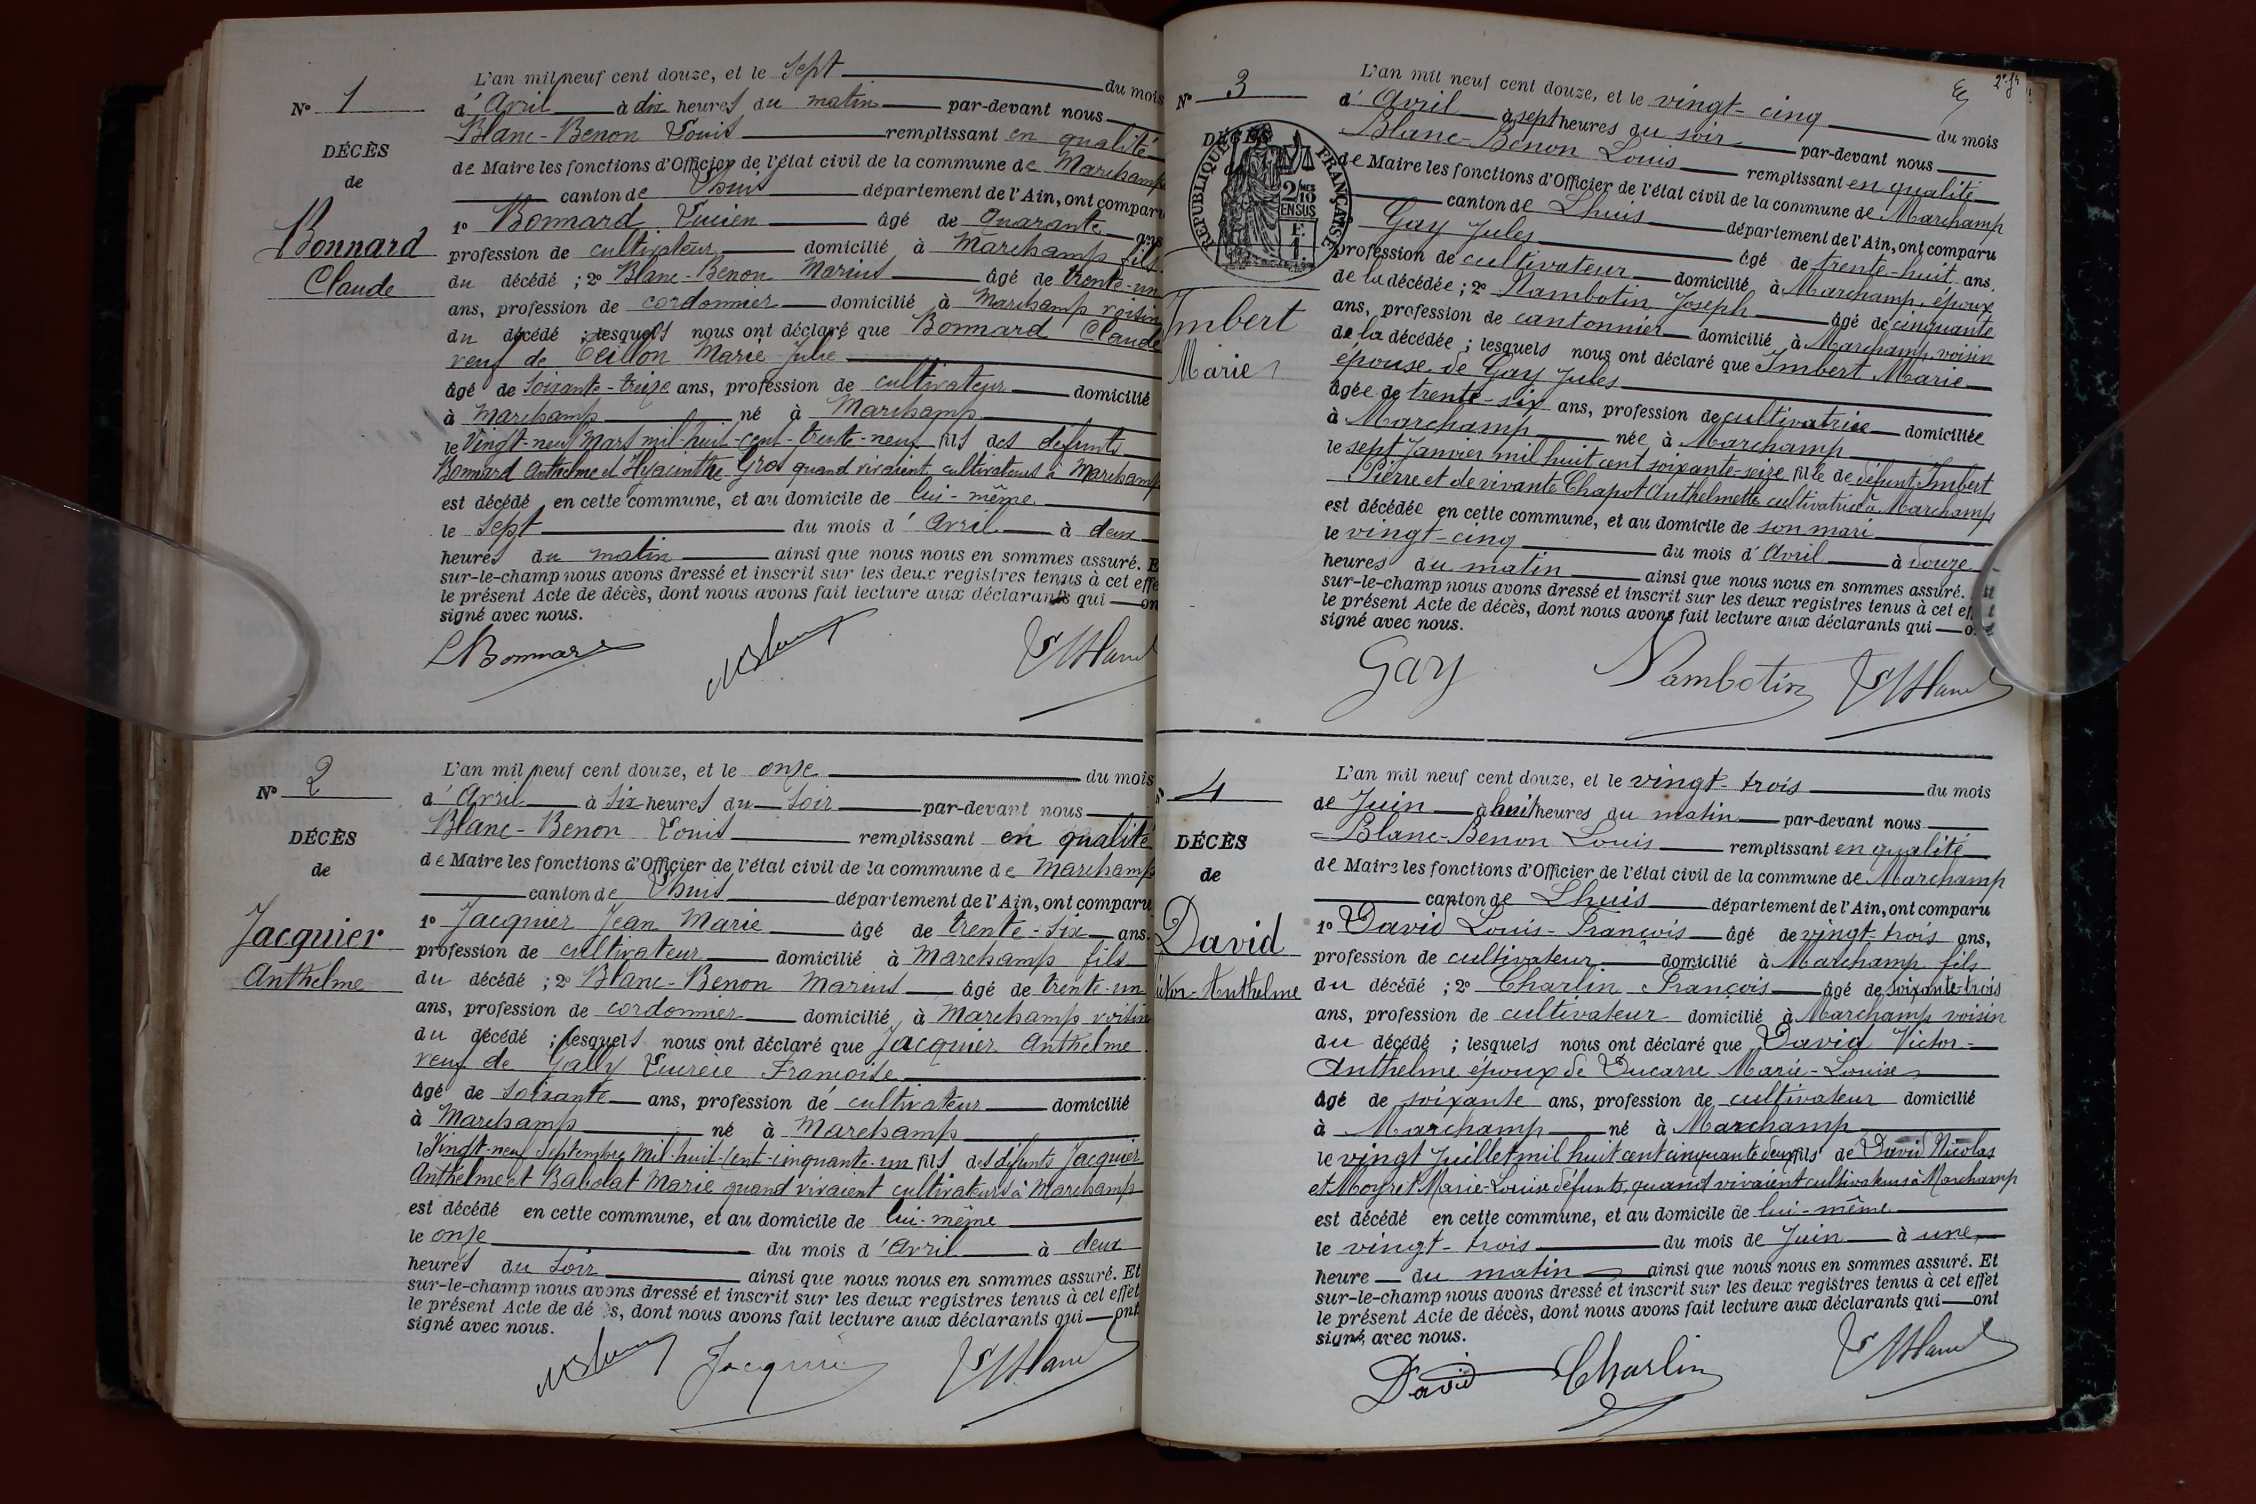 N° 1
DÉCÈS
de
Bonnard
Claude
L'an mil neuf cent douze, et le sept du mois
d'Avril à dix heures du matin par-devant nous
Blanc-Benon Louis remplissant en qualité
de Maire les fonctions d'Officier de l'état civil de la commune de Marchamp
canton de Lhuis département de l'Ain, ont comparu
1° Bonnard Lucien âgé de Quarante ans
profession de cultivateur domicilié à Marchamp fils
du décédé ; 2° Blanc-Benon Marius âgé de trente-un
ans, profession de cordonnier domicilié à Marchamp voisin
du décédé ; lesquels nous ont déclaré que Bonnard Claude
veuf de Marie Julie
âgé de soixante-treize ans, profession de cultivateur domicilié
à Marchamp né à Marchamp
le Vingt-neuf Mars mil-huit-cent-trente-neuf fils des défunts
Bonnard Anthelme et Hyacinthe Gros quand vivaient cultivateurs à Marchamp
est décédé en cette commune, et au domicile de lui-même
le sept du mois d'Avril à deux
heures du matin ainsi que nous nous en sommes assuré. E
sur-le-champ nous avons dressé et inscrit sur les deux registres tenus à cet effe
le présent Acte de décès, dont nous avons fait lecture aux déclarants qui on
signé avec nous.
LBonnard
N° 2
DÉCÈS
de
Jacquier
Anthelme
L'an mil neuf cent douze, et le onze du mois
d'Avril à six heures du soir par-devant nous
Blanc-Benon Louis remplissant en qualité
de Maire les fonctions d'Officier de l'état civil de la commune de Marchamp
canton de Lhuis département de l'Ain, ont comparu
1° Jacquier Jean Marie âgé de trente-six ans.
profession de cultivateur domicilié à Marchamp fils
du décédé ; 2° Blanc-Benon Marius âgé de trente-un
ans, profession de cordonnier domicilié à Marchamp voisin
du décédé ; lesquels nous ont déclaré que Jacquier Anthelme
veuf de Gally Lucrèce Françoise
âgé de soixante ans, profession de cultivateur domicilié
à Marchamp né à Marchamp
le Vingt-neuf Septembre Mil-huit-Cent-cinquante-un fils des défunts Jacquier
Anthelme et Babolat Marie quand vivaient cultivateurs à Marchamp
est décédé en cette commune, et au domicile de lui-même
le onze du mois d'Avril à deux
heures du soir ainsi que nous nous en sommes assuré. Et
sur-le-champ nous avons dressé et inscrit sur les deux registres tenus à cet effet
le présent Acte de dé s, dont nous avons fait lecture aux déclarants qui ont
signé avec nous.
Jacquier
2e fr
N° 3
DÉCÈS
RÉPUBLIQUE FRANÇAISE
2/10
EN SUS
Imbert
Marie
L'an mil neuf cent douze, et le vingt-cinq du mois
d'Avril à sept heures du soir par-devant nous
Blanc-Benon Louis remplissant en qualité
de Maire les fonctions d'Officier de l'état civil de la commune de Marchamp
canton de Lhuis département de l'Ain, ont comparu
Gay Jules âgé de trente-huit ans.
profession de cultivateur domicilié à Marchamp, époux
de la décédée ; 2° Nambotin Joseph âgé de cinquante
ans, profession de cantonnier domicilié à Marchamp, voisin
de la décédée ; lesquels nous ont déclaré que Imbert Marie
épouse de Gay Jules
âgée de trente-six ans, profession de cultivatrice domiciliée
à Marchamp née à Marchamp
le sept Janvier mil huit cent soixante-seize fille de défunt Imbert
Pierre et de vivante Chapot Anthelmette cultivatrice à Marchamp
est décédée en cette commune, et au domicile de son mari
le vingt-cinq du mois d'Avril à douze
heures du matin ainsi que nous nous en sommes assuré.
sur-le-champ nous avons dressé et inscrit sur les deux registres tenus à cet ef
le présent Acte de décès, dont nous avons fait lecture aux déclarants qui
signé avec nous.
Gay Nambotin
4
DÉCÈS
de
David
Victor-Anthelme
L'an mil neuf cent douze, et le vingt-trois du mois
de Juin à huit heures du matin par-devant nous
Blanc-Benon Louis remplissant en qualité
de Maire les fonctions d'Officier de l'état civil de la commune de Marchamp
canton de Lhuis département de l'Ain, ont comparu
1° David Louis-François âgé de vingt-trois ans,
profession de cultivateur domicilié à Marchamp fils
du décédé ; 2° Charlin François âgé de soixante-trois
ans, profession de cultivateur domicilié à Marchamp voisin
du décédé ; lesquels nous ont déclaré que David Victor-
Anthelme époux de Ducarre Marie-Louise
âgé de soixante ans, profession de cultivateur domicilié
à Marchamp né à Marchamp
le vingt Juillet mil huit cent cinquante deux fils de David Nicolas
et Moyret Marie-Louise défunts, quand vivaient cultivateurs à Marchamp
est décédé en cette commune, et au domicile de lui-même
le vingt-trois du mois de Juin à une
heure du matin ainsi que nous nous en sommes assuré. Et
sur-le-champ nous avons dressé et inscrit sur les deux registres tenus à cet effet
le présent Acte de décès, dont nous avons fait lecture aux déclarants qui ont
signé avec nous.
David Charlin